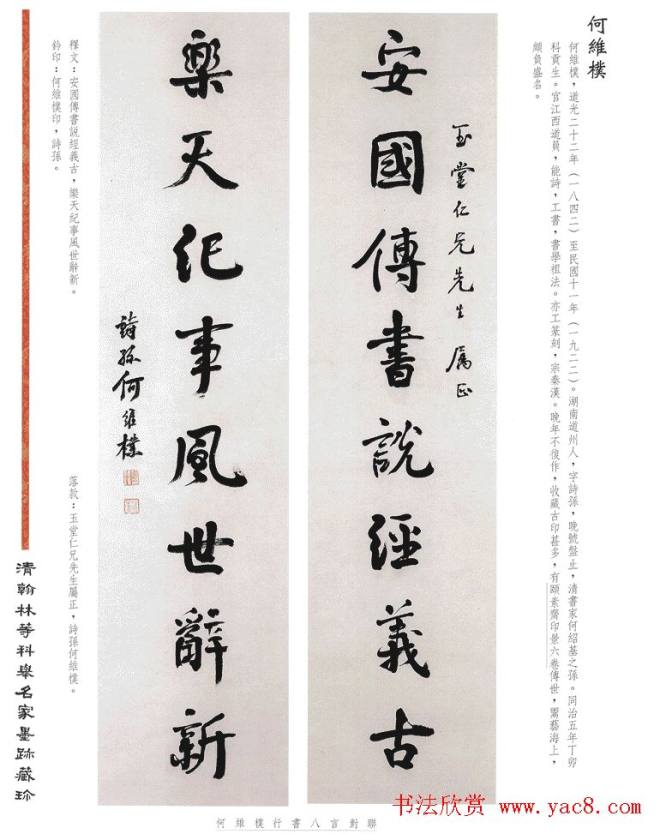 何維樸
何維樸，道光二十二年（一八四二）至民國十一年（一九二二）。湖南道州人，字詩孫，晚號盤止，清書家何紹基之孫。同治五年丁卯
科貢生。官江西道員，能詩，工書，書學祖法。亦工篆刻，宗秦漢。晚年不復作，收藏古印甚多，有頤素齋印景六卷傳世，鬻藝海上，
頗負盛名。
玉堂仁兄先生屬正
安國傳書說經義古
樂天紀事風世辭新
詩孫何維樸
釋文：安國傳書說經義古，樂天紀事風世辭新。
鈐印：何維樸印，詩孫。
落款：玉堂仁兄先生屬正，詩孫何維樸。
清翰林等科舉名家墨跡藏珍
何維樸行書八言對聯
书法欣赏：www.yac8.com